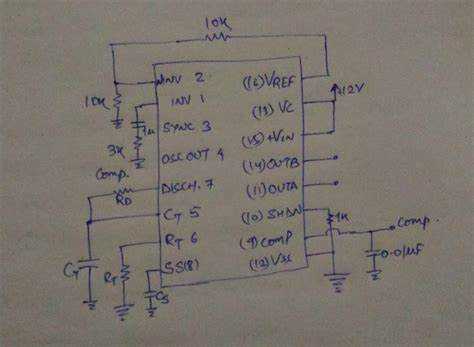 10K
NINV 2
(16) VREF
+12V
10K
INV 1
(13) VC
1u
SYNC 3
(15) +VIN
3K
OSC OUT 4
(14) OUTB
Comp.
RD
DISCH. 7
(11) OUTA
CT 5
(10) SHDN
1K
Comp.
RT 6
(9) COMP
CT
RT
SS(8)
(12) VSS
0.01µF
CS